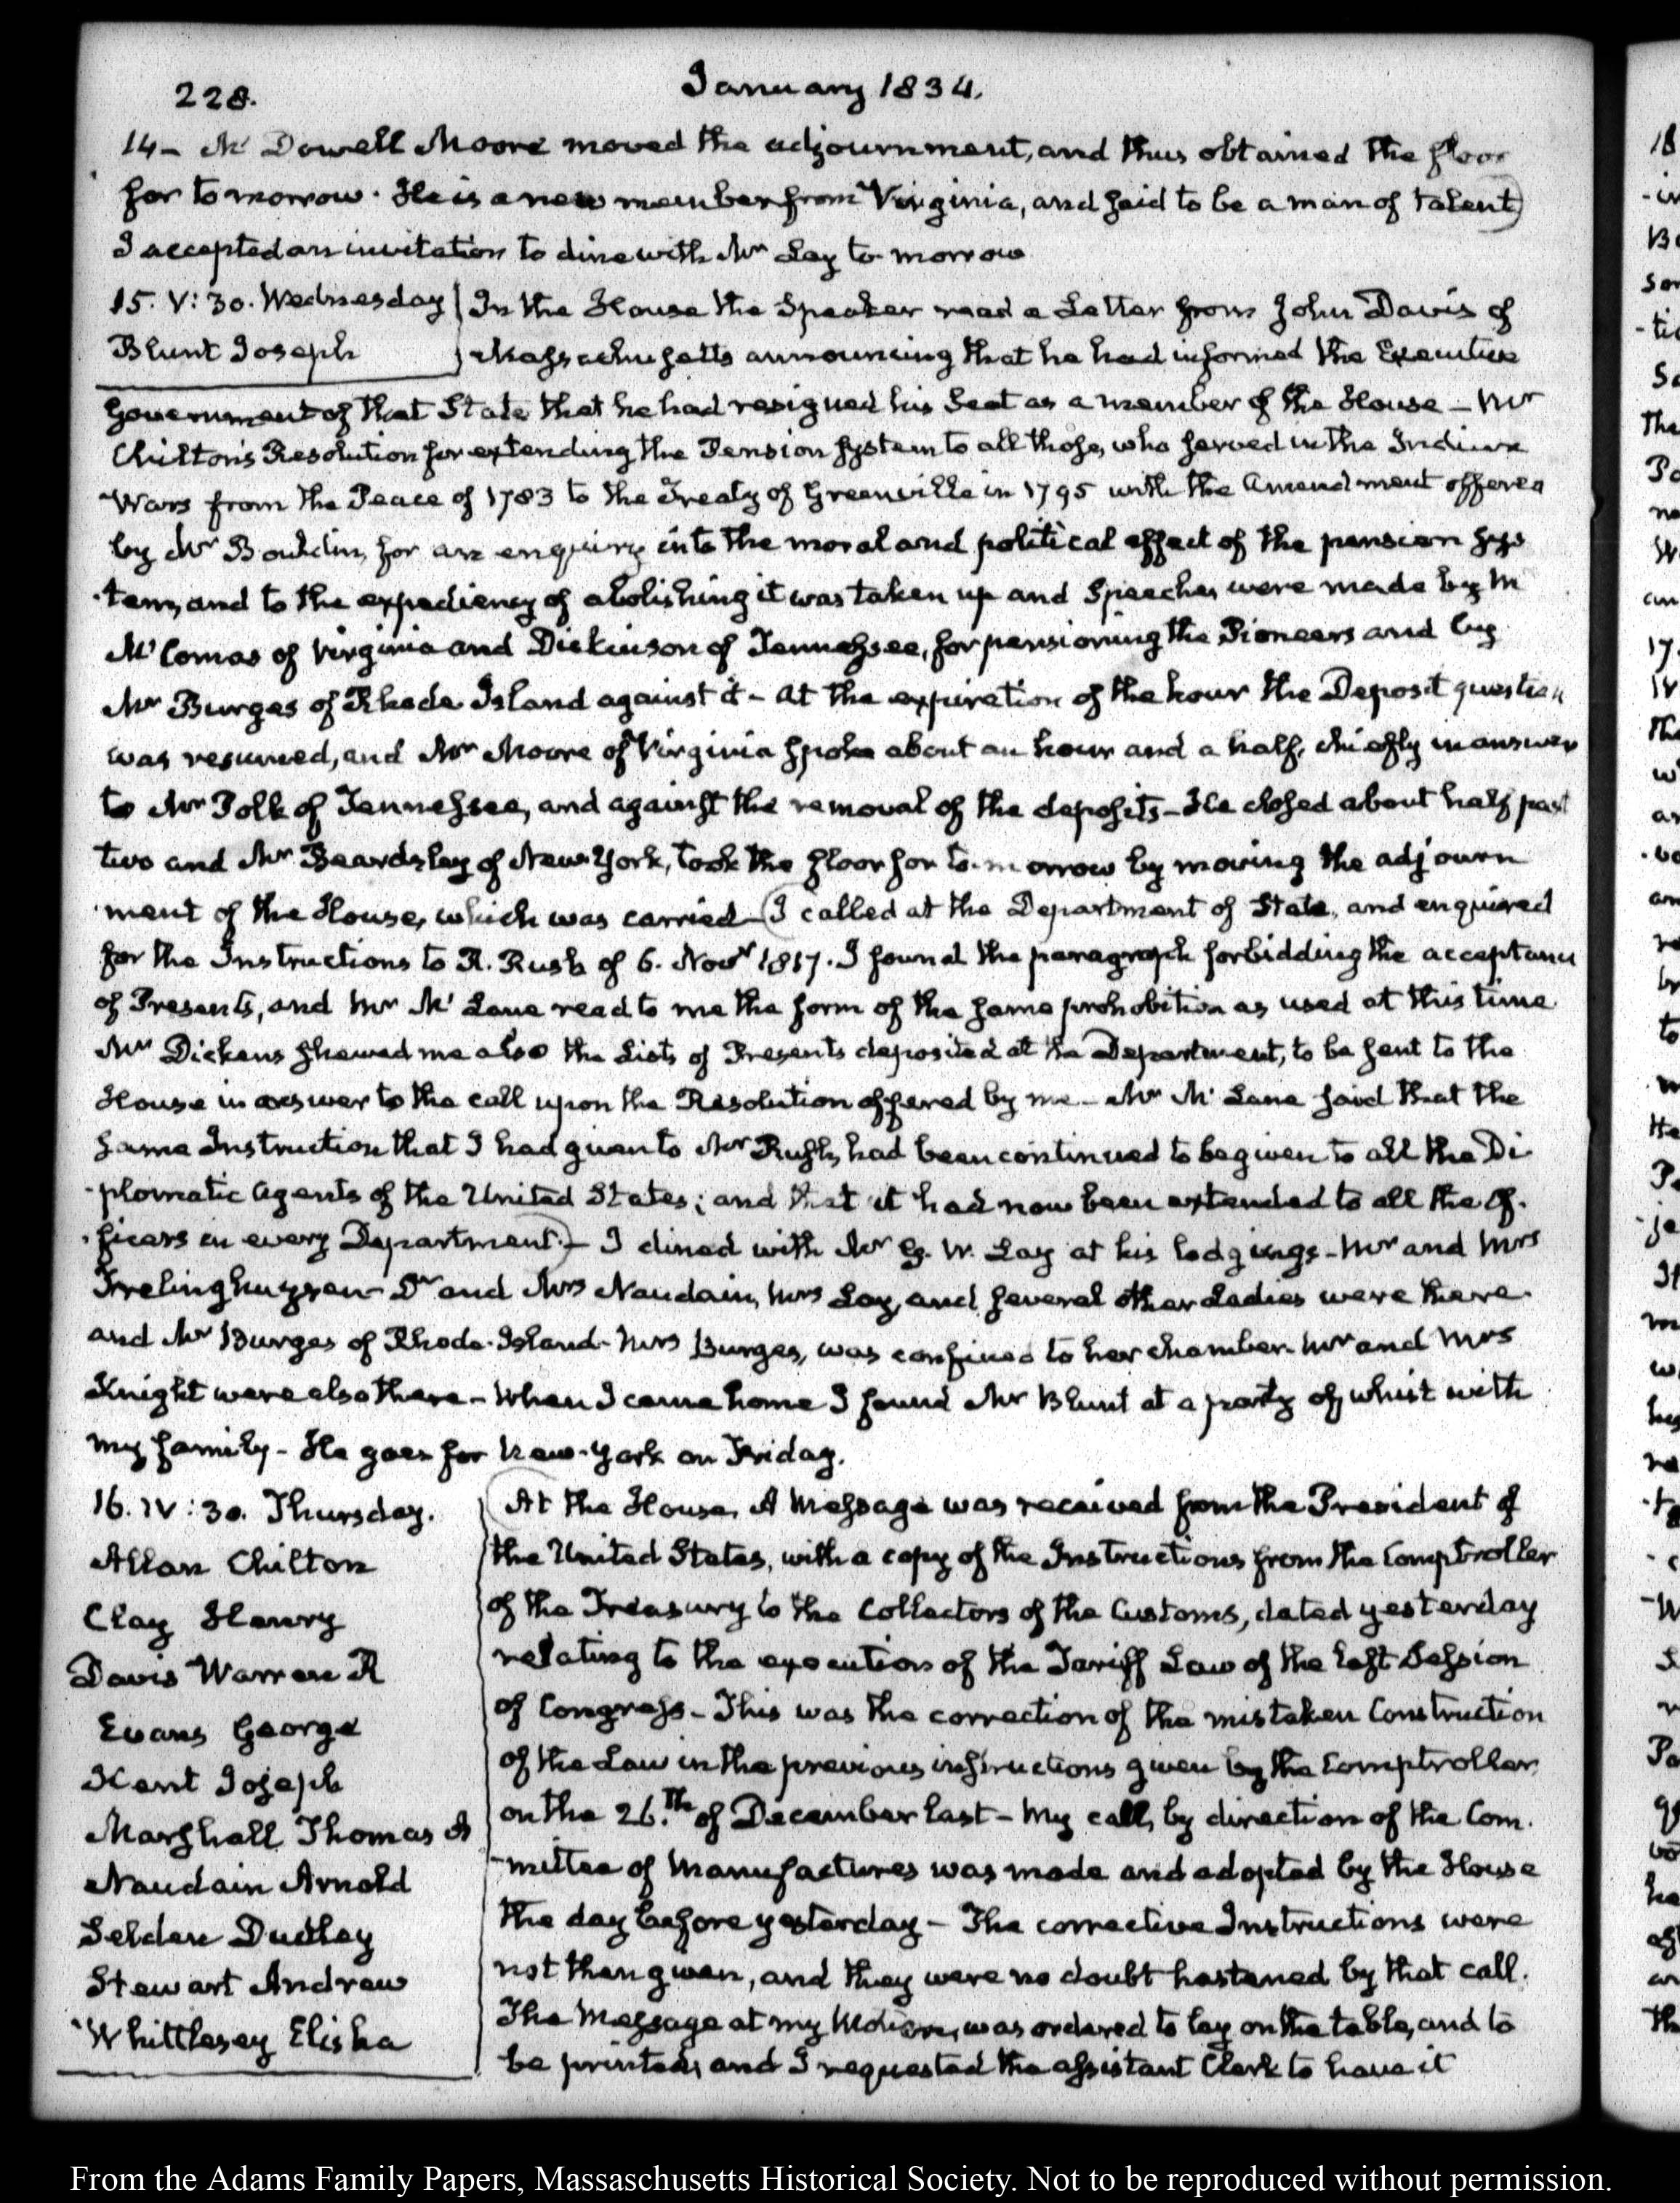 228.
January 1834.
14- Mc Dowell Moore moved the adjournment, and thus obtained the floor
for to morrow. He is a new member from Virginia, and said to be a man of talent)
I accepted an invitation to dine with Mr Lay to-morrow
15. V: 30. Wednesday
Blunt Joseph
In the House the Speaker read a Letter from John Davis of
Massachusetts announcing that he had informed the Executive
Government of that State that he had resigned his Seat as a member of the House - Mr
Chilton's Resolution for extending the Pension system to all those, who served in the Indian
Wars from the Peace of 1783 to the Treaty of Greenville in 1795 with the Amendment offered
by Mr Bouldin, for an enquiry into the moral and political effect of the pension sys
-tem, and to the expediency of abolishing it was taken up and Speeches were made by Mr
Mc Comas of Virginia and Dickinson of Tennessee, for pensioning the Pioneers and by
Mr Burges of Rhode Island against it - at the expiration of the hour the Deposit question
was resumed, and Mr Moore of Virginia spoke about an hour and a half, chiefly in answer
to Mr Polk of Tennessee, and against the removal of the deposits - He closed about half past
two and Mr Beardsley of New York, took the floor for to-morrow by moving the adjourn
-ment of the House, which was carried - (I called at the Department of State, and enquired
for the Instructions to R. Rush of 6. Novr 1817. I found the paragraph forbidding the acceptance
of Presents, and Mr Mc Lane read to me the form of the same prohobition as used at this time
Mr Dickens shewed me also the Lists of Presents deposited at the Department, to be sent to the
House in answer to the call upon the Resolution offered by me - Mr Mc Lane said that the
same Instruction that I had given to Mr Rush, had been continued to be given to all the Di
-plomatic Agents of the United States; and that it had now been extended to all the Of-
-ficers in every Department) - I dined with Mr G. W. Lay at his lodgings - Mr and Mrs
Frelinghuysen - Dr and Mrs Naudain, Mrs Lay, and several other Ladies were there
and Mr Burges of Rhode-Island - Mrs Burges, was confined to her chamber - Mr and Mrs
Knight were also there - When I came home I found Mr Blunt at a party of whist with
my family - He goes for New-York on Friday.
16. IV: 30. Thursday.
Allan Chilton
Clay Henry
Davis Warren R
Evans George
Kent Joseph
Marshall Thomas A
Naudain Arnold
Selden Dudley
Stewart Andrew
Whittlesey Elisha
(At the House, A Message was received from the President of
the United States, with a copy of the Instructions from the Comptroller
of the Treasury to the Collectors of the Customs, dated yesterday
relating to the execution of the Tariff Law of the last Session
of Congress - This was the correction of the mistaken Construction
of the Law in the previous instructions given by the Comptroller
on the 26.th of December last - My call, by direction of the Com-
-mittee of Manufactures was made and adopted by the House
the day before yesterday - The corrective Instructions were
not then given, and they were no doubt hastened by that call.
The Message at my Motion, was ordered to lay on the table, and to
be printed, and I requested the assistant Clerk to have it
From the Adams Family Papers, Massachusetts Historical Society. Not to be reproduced without permission.